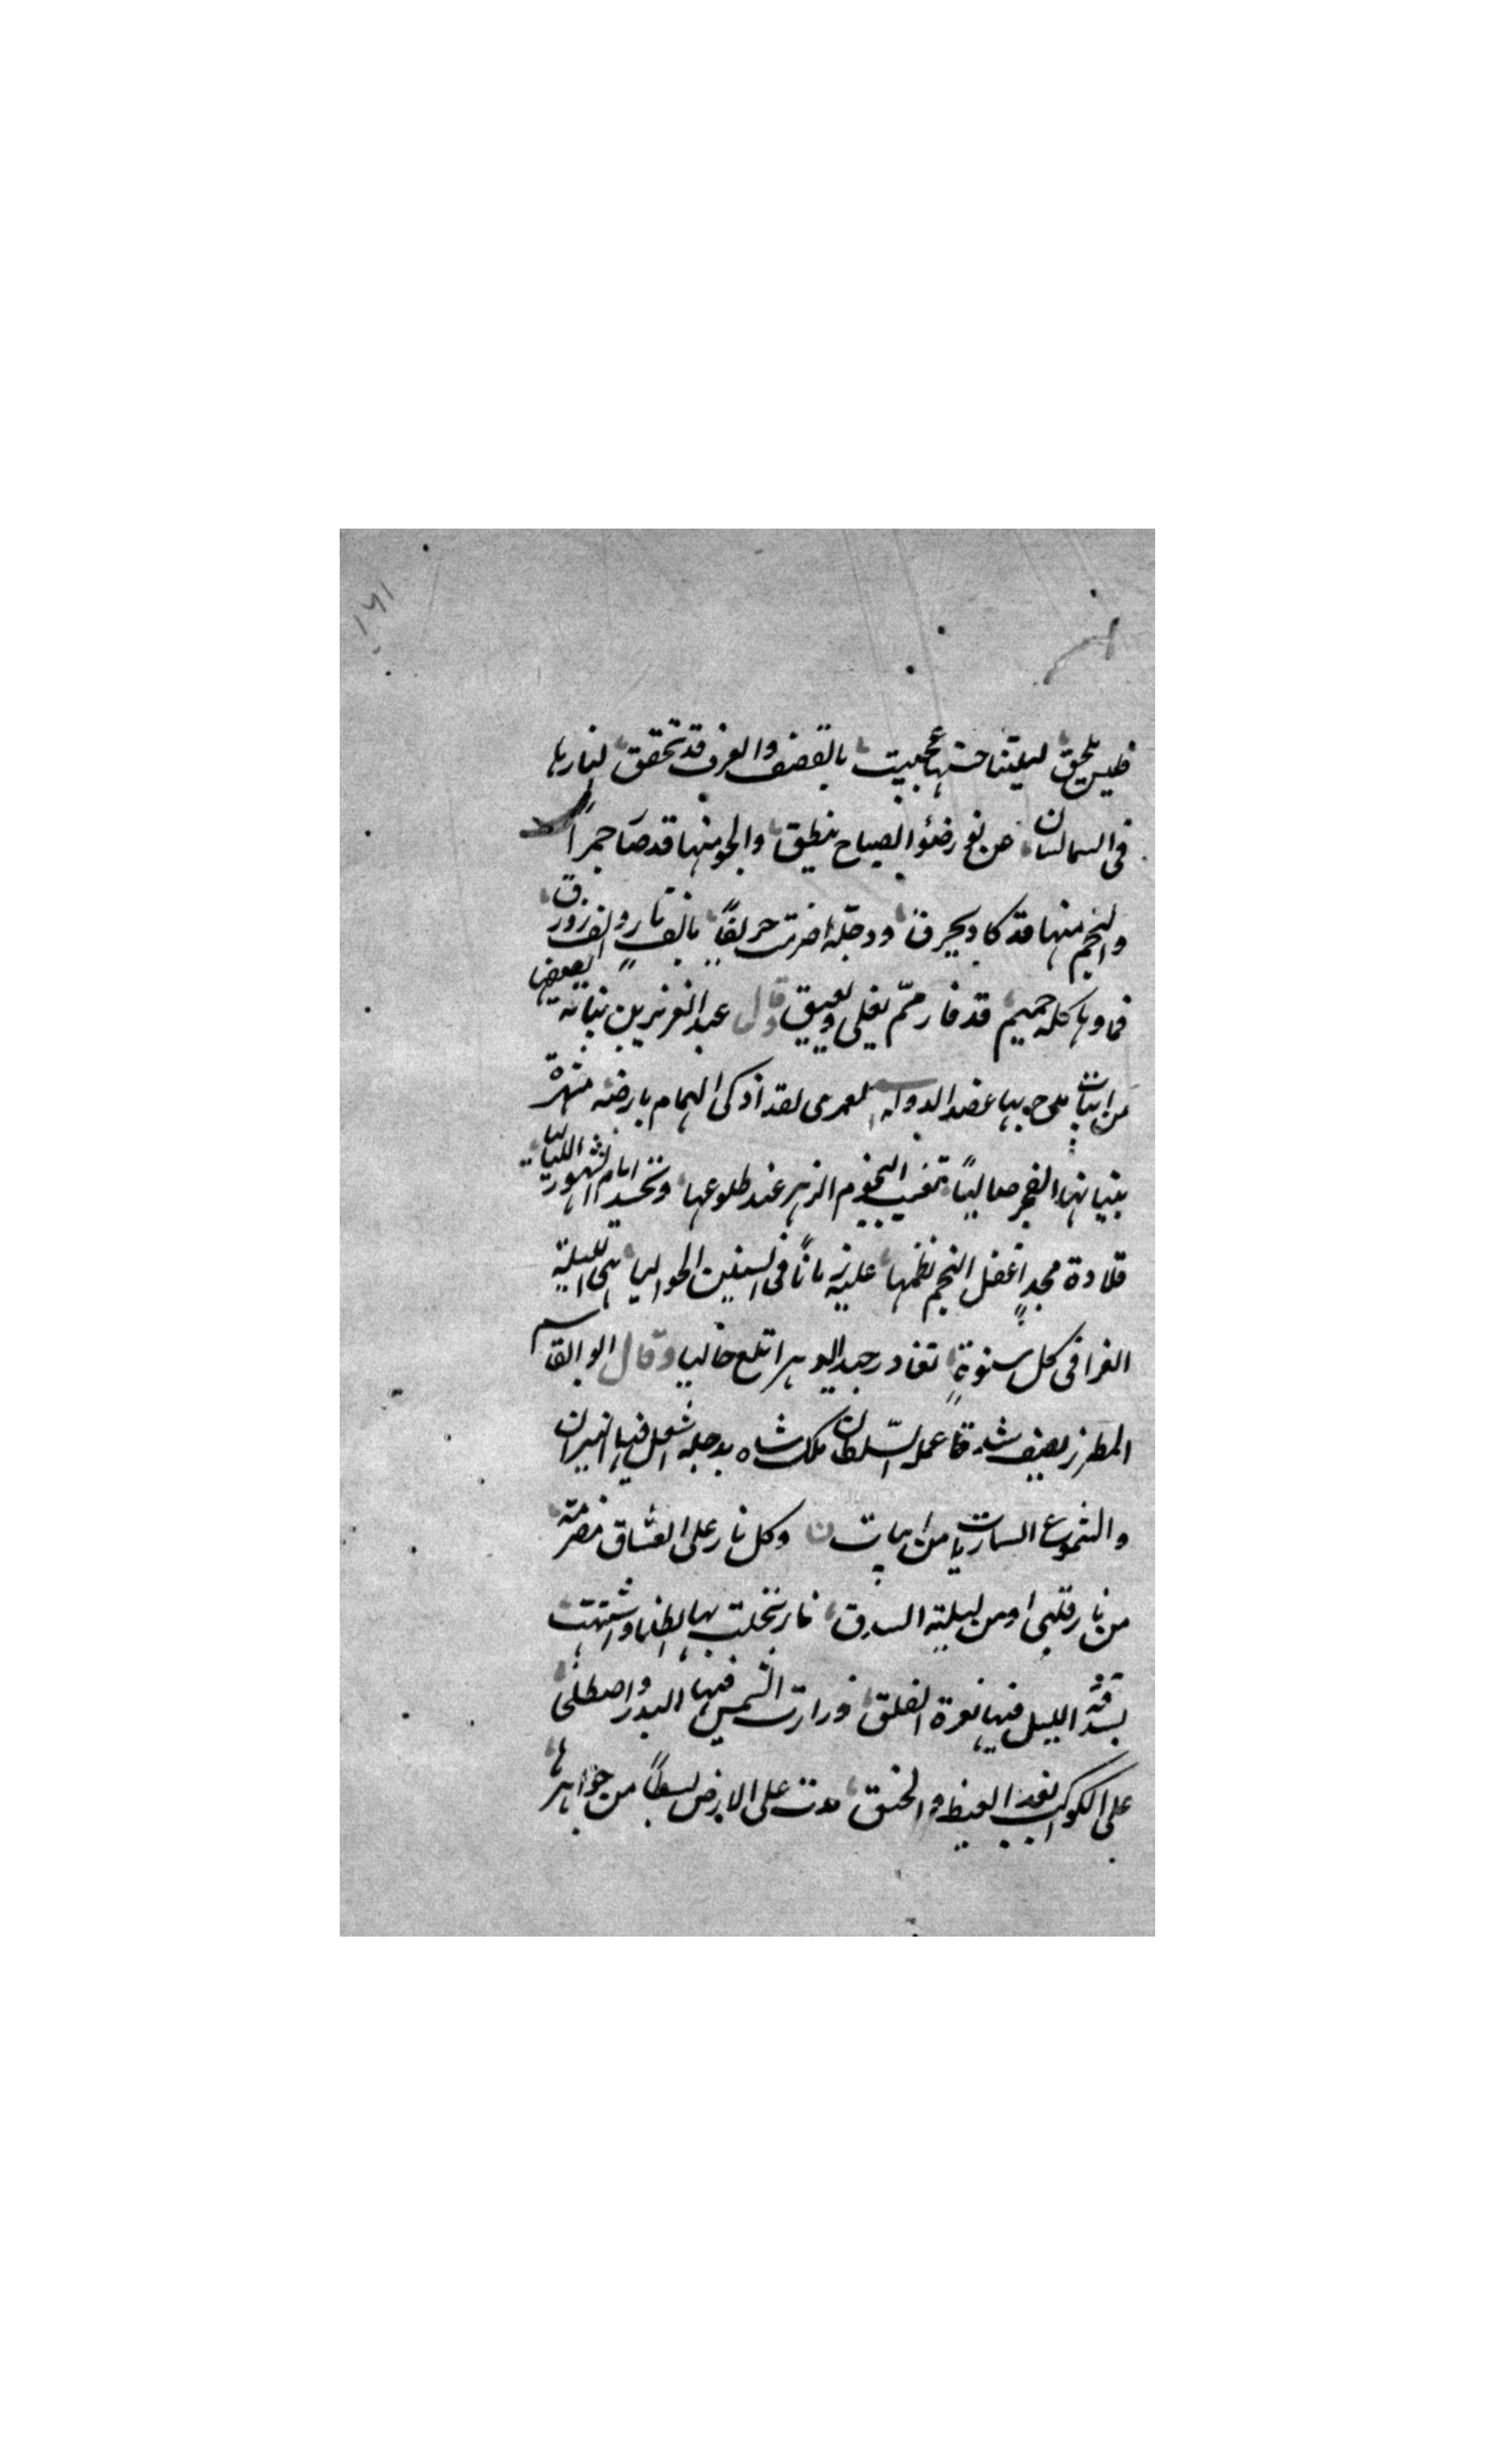 ١٤١
فليس يلحق ليلتنا حسنها عجيب بالقصف والعزف قد تحقق لنارها
فى السما لسان عن نور ضؤ الصباح ينطق والجو منها قد صار جمراً
والنجم منها قد كاد يحرق ودجلة اضرمت حريقاً بالف نار والف زورق
فماوها كله حميم قد فار مما يغلى ويعبق وقال عبد العزيز بن نباته يصفها
من ابيات يمدح بها عضد الدوله لعمرى لقد اذكى الهمام بارضه منهرة
بنيانها الفجر صاليًا تغيب النجوم الزهر عند طلوعها وتحسد ايام الشهور اللياليا
قلادة مجدٍ اغفل النجم نظمها عليه زماناً فى السنين الحواليا هى الليلة
الغرا فى كل سنوةٍ تغادر جيد الدهر اتلع حاليا وقال ابو القاسم
المطرز يصف سذقا عمله السّلطان ملك شاه بدجله اشعل فيها النيران
والشموع الساريات من ابيات وكل نار على العشاق مضرمة
من نار قلبى او من ليلة السدق نار تجلت بها الظلما واشتبهت
بسدفة الليل فيها غرة الفلق وزارت الشمس فيها البدر واصطلحا
على الكواكب بعد الغيظ والحنق مدت على الارض بسطاً من جواهرها